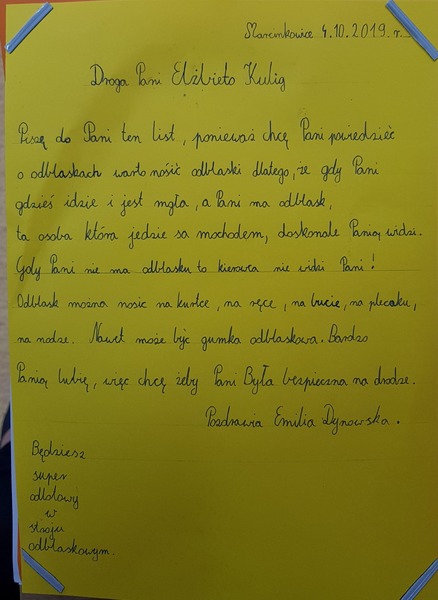 Marcinkowice 4.10.2019.r
Droga Pani Elżbieto Kulig
Piszę do Pani ten list, ponieważ chcę Pani powiedzieć
o odblaskach warto nosić odblaski dlatego, że gdy Pani
gdzieś idzie i jest mgła, a Pani ma odblask,
ta osoba która jedzie sa mochodem, doskonale Panią widzi.
Gdy Pani nie ma odblasku to kierowca nie widzi Pani!
Odblask można nosic na kurtce, na ręce, na bucie, na plecaku,
na nodze. Nawet może być gumka odblaskowa. Bardzo
Panią lubię, więc chcę żeby Pani Była bezpieczna na drodze.
Pozdrawia Emilia Dynowska.
Będziesz
super
odlotowy
w
stroju
odblaskowym.